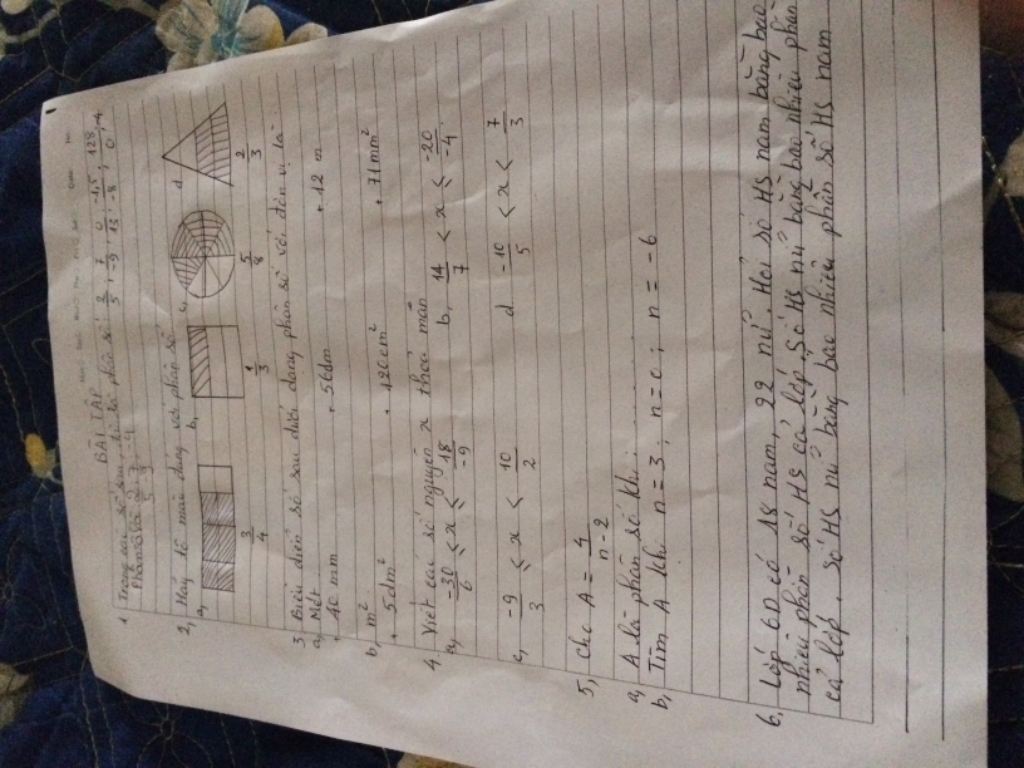 BÀI TẬP
1 Trong các số sau, số nào là phân số? 2/5; 7/-9; 0/13; -45/-8; 128/0; 4
2, Hãy tô màu đúng với phân số
a, b, c, d
3/4 1/3 5/8 2/3
3 Biểu diễn số sau dưới dạng phân số với đơn vị là
a, Mét
. 40 mm . 56dm . 12 m
b, m²
. 5dm² . 120cm² . 71mm²
4. Viết các số nguyên x thỏa mãn
a, -30/6 < x ≤ -18/-9 b, 14/7 < x ≤ -20/-4
c, -9/3 ≤ x < 10/2 d -10/5 < x < 7/3
5, Cho A = 4/n-2
a, A là phân số khi:
b, Tìm A khi n = 3; n = 0; n = -6
6, Lớp 6D có 18 nam, 22 nữ. Hỏi số HS nam bằng bao
nhiêu phần số HS cả lớp, Số HS nữ bằng bao nhiêu phần
cả lớp. Số HS nữ bằng bao nhiêu phần số HS nam